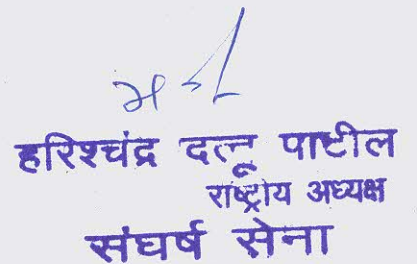 हरिश्चंद्र दत्तू पाटील
राष्ट्रीय अध्यक्ष
संघर्ष सेना